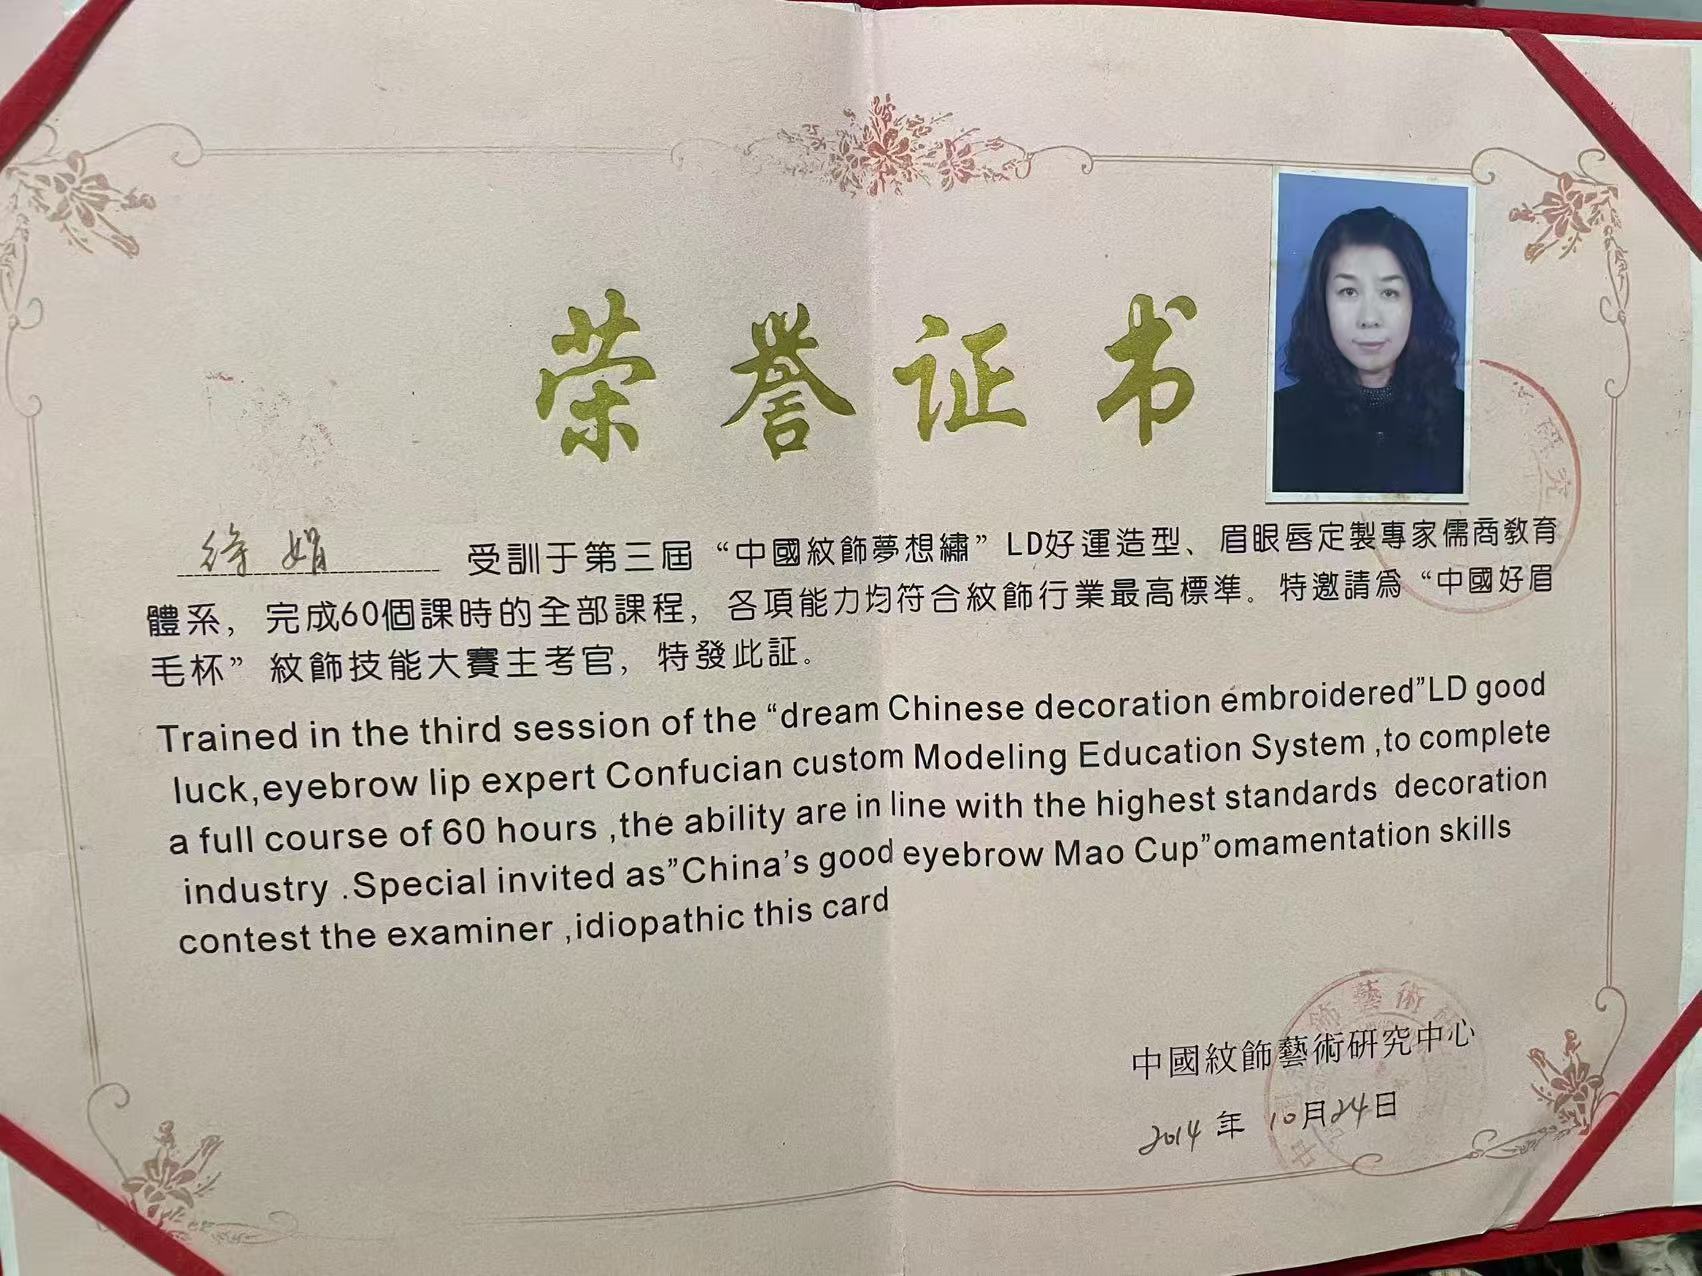 荣誉证书
徐娟 受訓于第三屆“中國紋飾夢想繡”LD好運造型、眉眼唇定製專家儒商教育
體系，完成60個課時的全部課程，各項能力均符合紋飾行業最高標準。特邀請爲“中國好眉
毛杯”紋飾技能大賽主考官，特發此証。
Trained in the third session of the “dream Chinese decoration embroidered”LD good
luck,eyebrow lip expert Confucian custom Modeling Education System ,to complete
a full course of 60 hours ,the ability are in line with the highest standards decoration
industry .Special invited as”China’s good eyebrow Mao Cup”omamentation skills
contest the examiner ,idiopathic this card
中國紋飾藝術研究中心
2014年10月24日